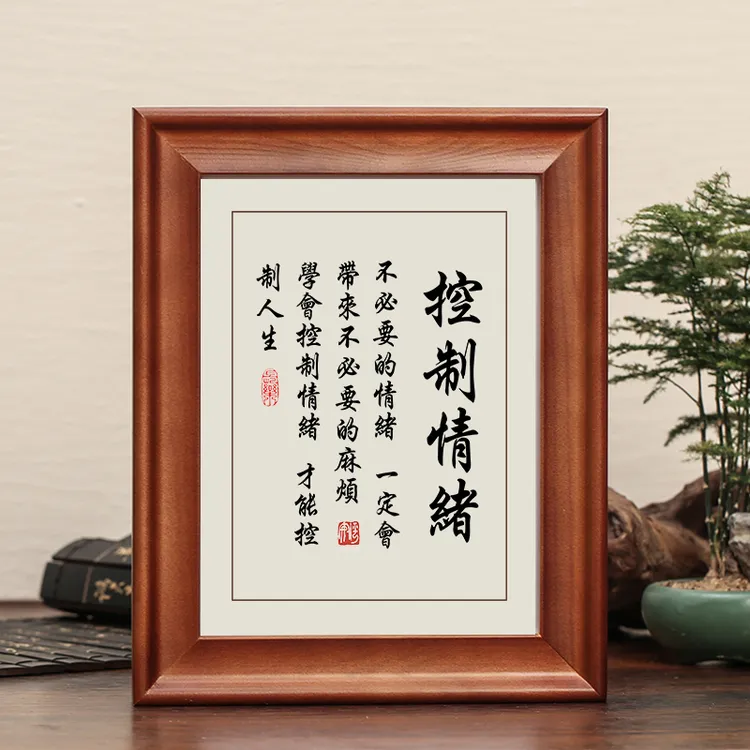 控制情緒
不必要的情緒 一定會
帶來不必要的麻煩
學會控制情緒 才能控
制人生